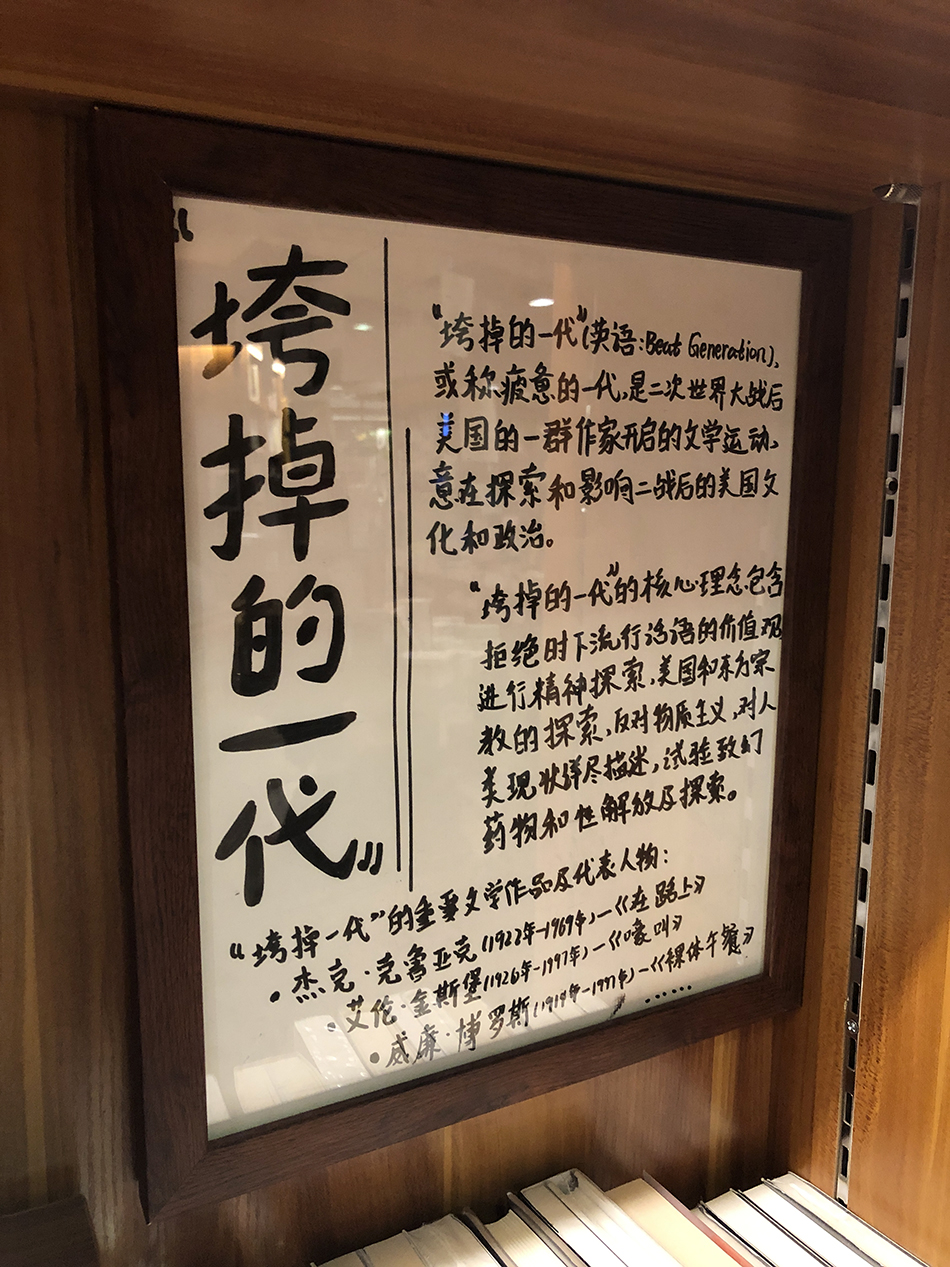 “垮掉的一代”
“垮掉的一代”(英语:Beat Generation)、
或称疲惫的一代,是二次世界大战后
美国的一群作家开启的文学运动、
意在探索和影响二战后的美国文
化和政治。
“垮掉的一代”的核心理念包含
拒绝时下流行话语的价值观
进行精神探索、美国和东方宗
教的探索、反对物质主义,对人
类现状详尽描述,试验致幻
药物和性解放及探索。
“垮掉一代”的重要文学作品及代表人物：
• 杰克·克鲁亚克(1922年-1969年)—《在路上》
• 艾伦·金斯堡(1926年-1997年)—《嚎叫》
• 威廉·博罗斯(1914年-1997年)—《裸体午餐》
……